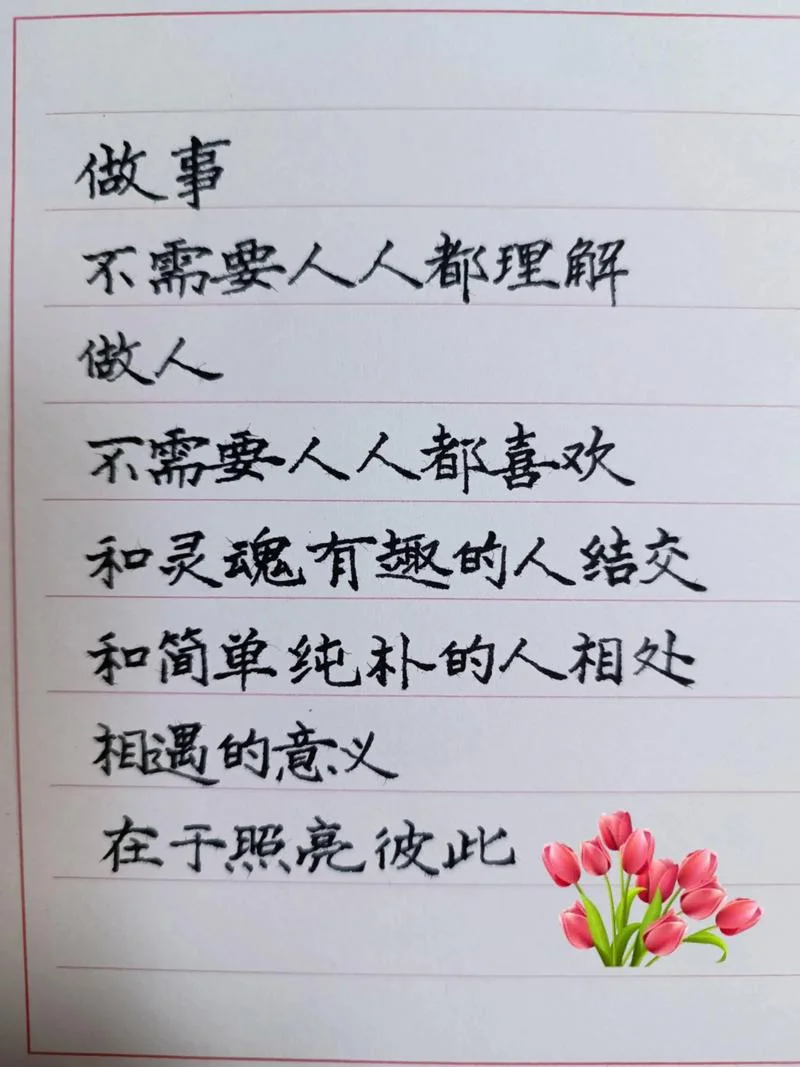 做事
不需要人人都理解
做人
不需要人人都喜欢
和灵魂有趣的人结交
和简单纯朴的人相处
相遇的意义
在于照亮彼此